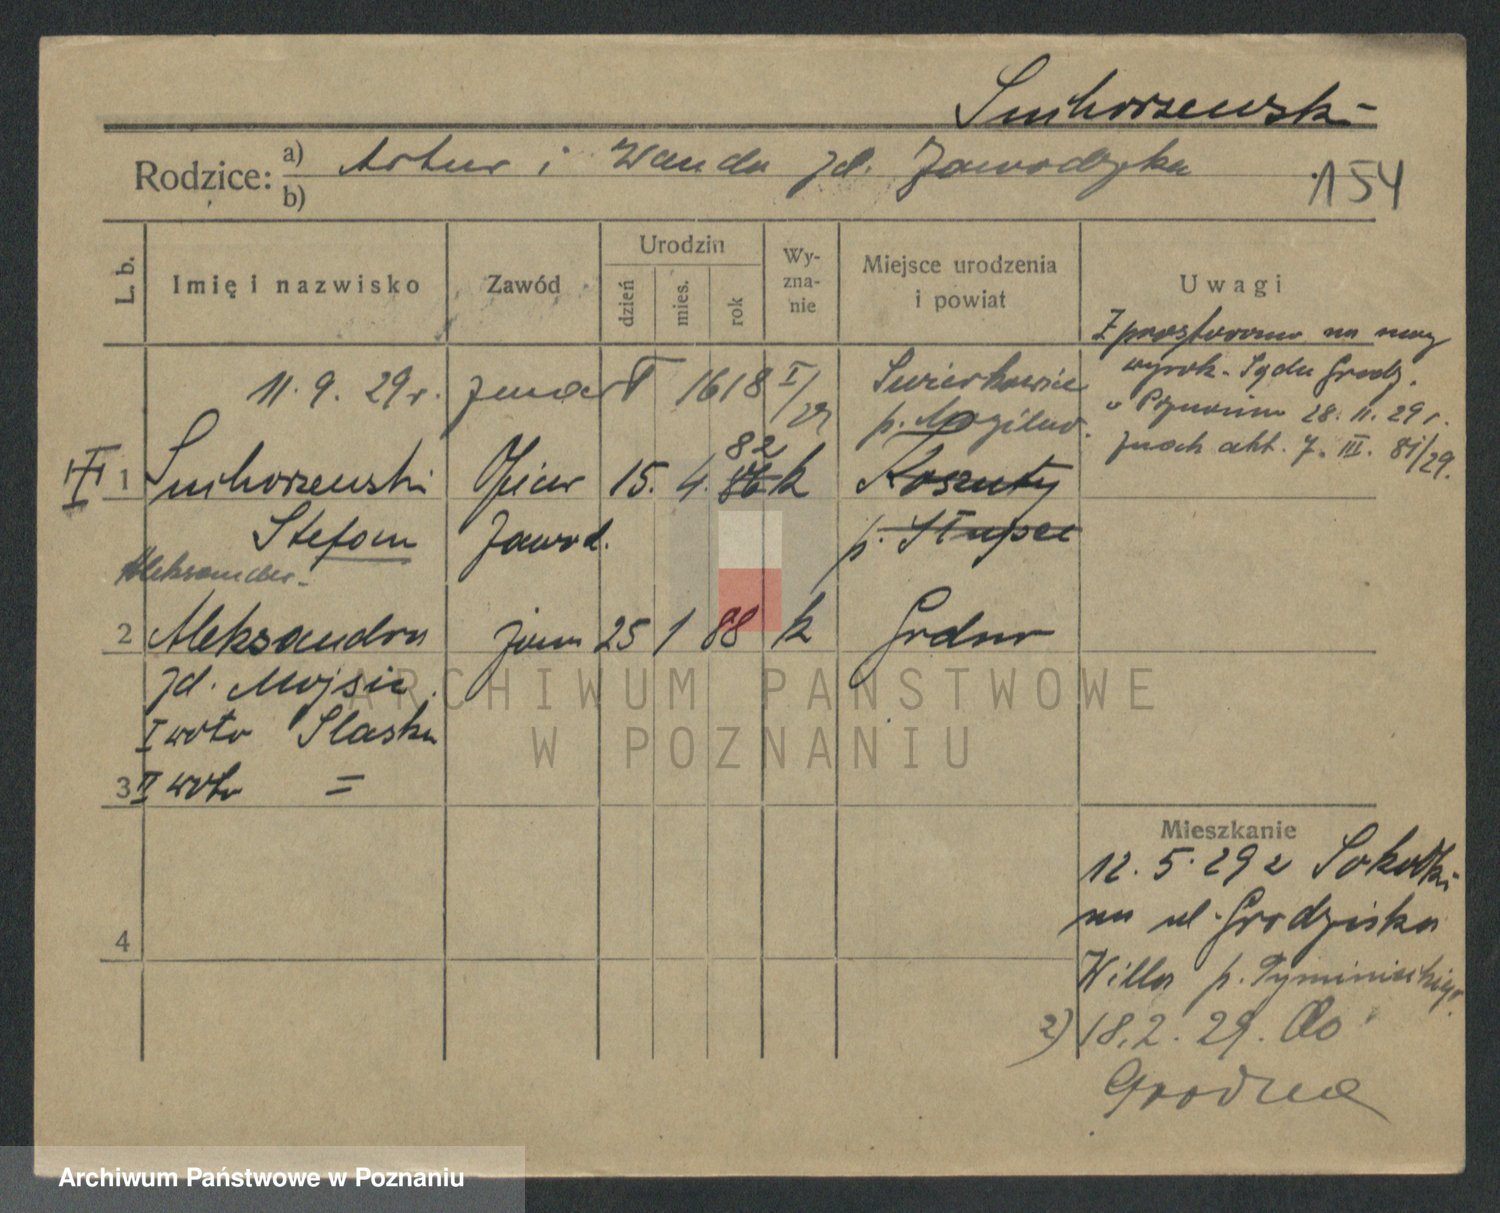 Suchorzewski
Rodzice: a) Artur i Wanda zd. Zawodzka
b)
154
L. b.
Imię i nazwisko
Zawód
Urodzin
dzień
mies.
rok
Wy-
zna-
nie
Miejsce urodzenia
i powiat
Uwagi
11. 9. 29 r. zmarł 1618 I/29
Swierkowice
p. Mogilno.
Z prostowano na mocy
wyrok. Sądu Grodz.
w Poznaniu 28. 11. 29 r.
znak akt. 7. III. 81/29.
1 Suchorzewski Oficer 15. 4. 82 86 k Koszuty
Stefan zawod. p. Słupca
Aleksander
2 Aleksandra żona 25 1 88 k Grodno
zd. Mojsie
I voto Slaska
3 II voto =
4
Mieszkanie
12. 5. 29 z Sokółki
na ul. Grodziska
Willa p.
2) 18. 2. 29. do
Grodna
ARCHIWUM PAŃSTWOWE
W POZNANIU
Archiwum Państwowe w Poznaniu